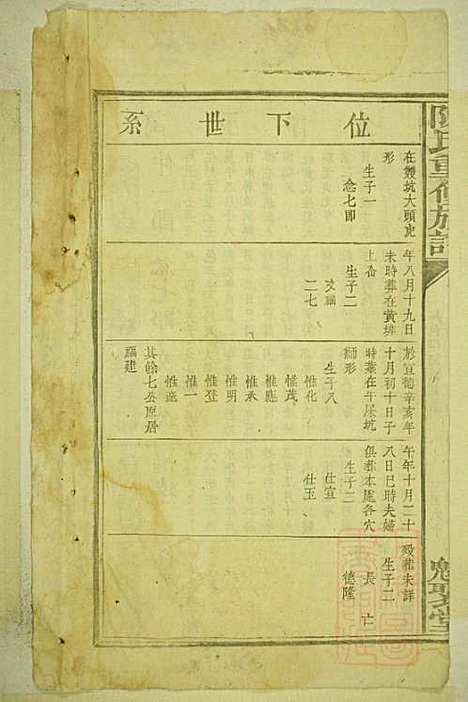 陳氏重修族譜
位下世系
在嫂坑大頭虎
形
生子一
念七郎
年八月十九日
未時葬在黃坭
上峇
生子二
文福
二七
於宣德辛亥年
十月初十日子
時葬在牛屎坑
獅形
生子八
惟化
惟茂
惟應
惟承
惟明
惟登
惟一
惟運
其餘七公原居
福建
午年十月二十
八日巳時夫婦
俱葬本處各穴
生子二
仕宣
仕玉
歿葬未詳
生子二
長亡
德隆
聚堂